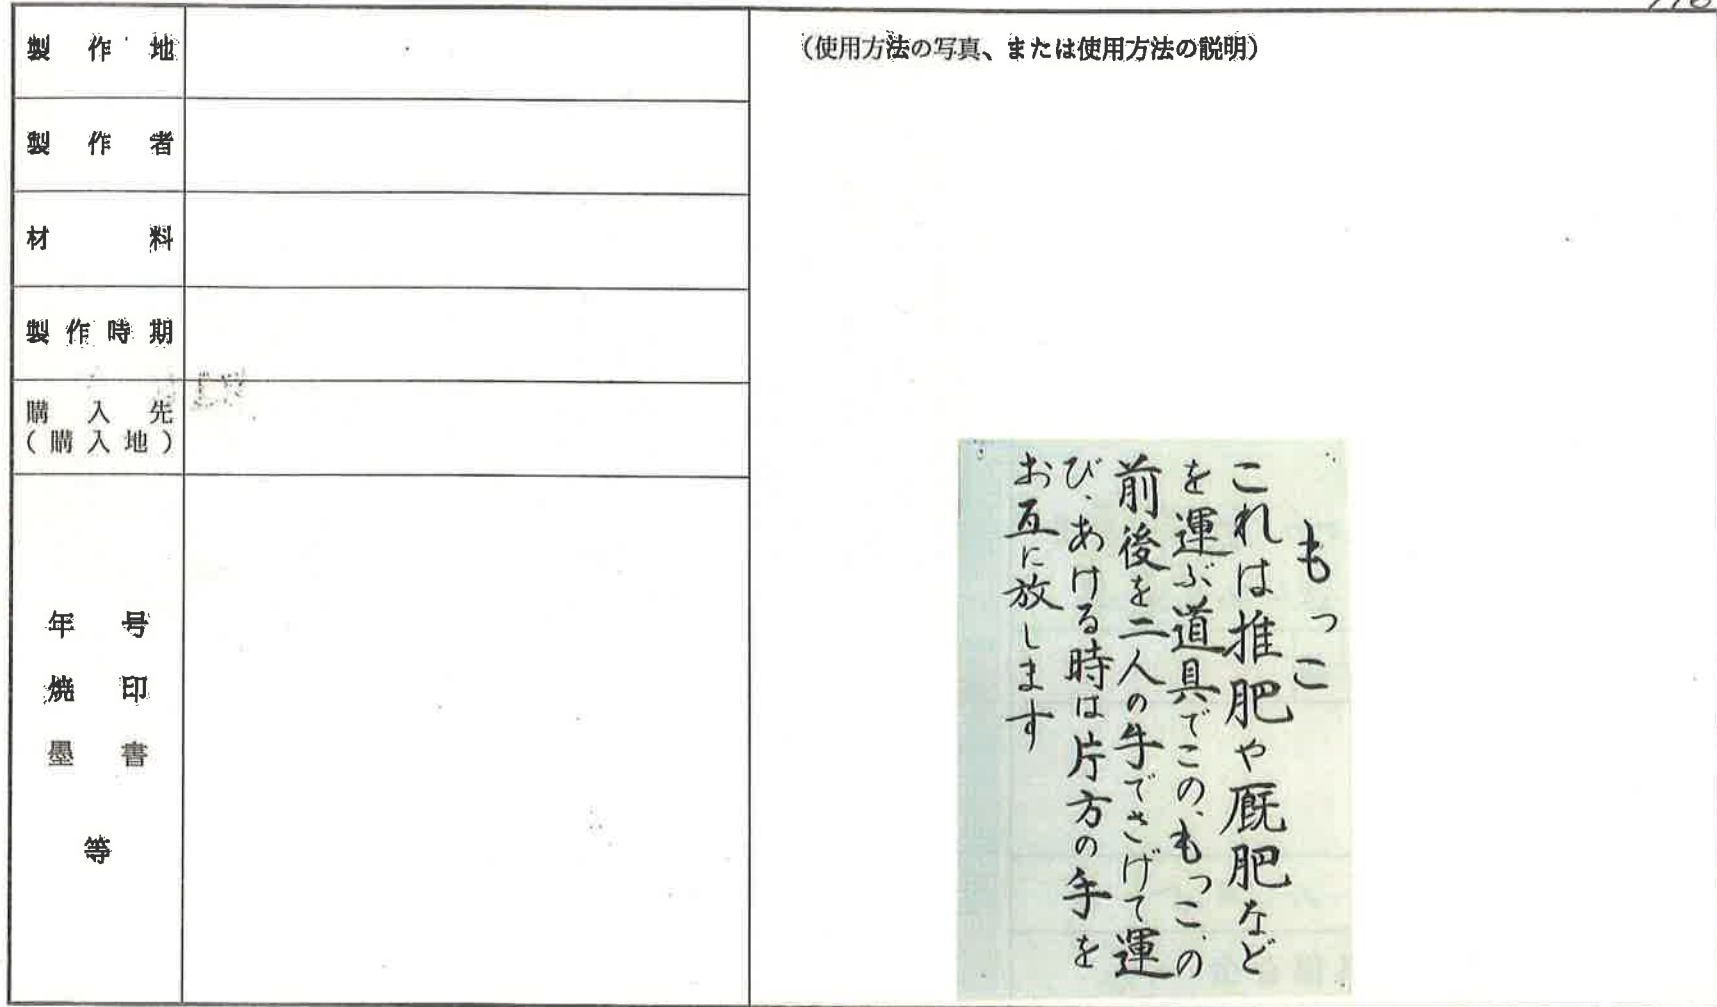 製作地
製作者
材料
製作時期
購入先
(購入地)
年号
焼印
墨書
等
(使用方法の写真、または使用方法の説明)
もっこ
これは推肥や厩肥など
を運ぶ道具でこの、もっこ、の
前後を二人の手でさげて運
び、あける時は片方の手を
お互に放します